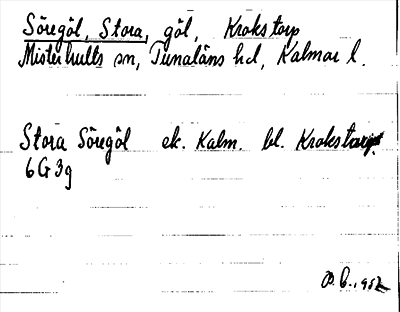 Söregöl, Stora, göl, Krokstorp
Misterhults sn, Tunaläns hd, Kalmar l.
Stora Söregöl ek. Kalm. bl. Krokstorp.
6G3g
1952